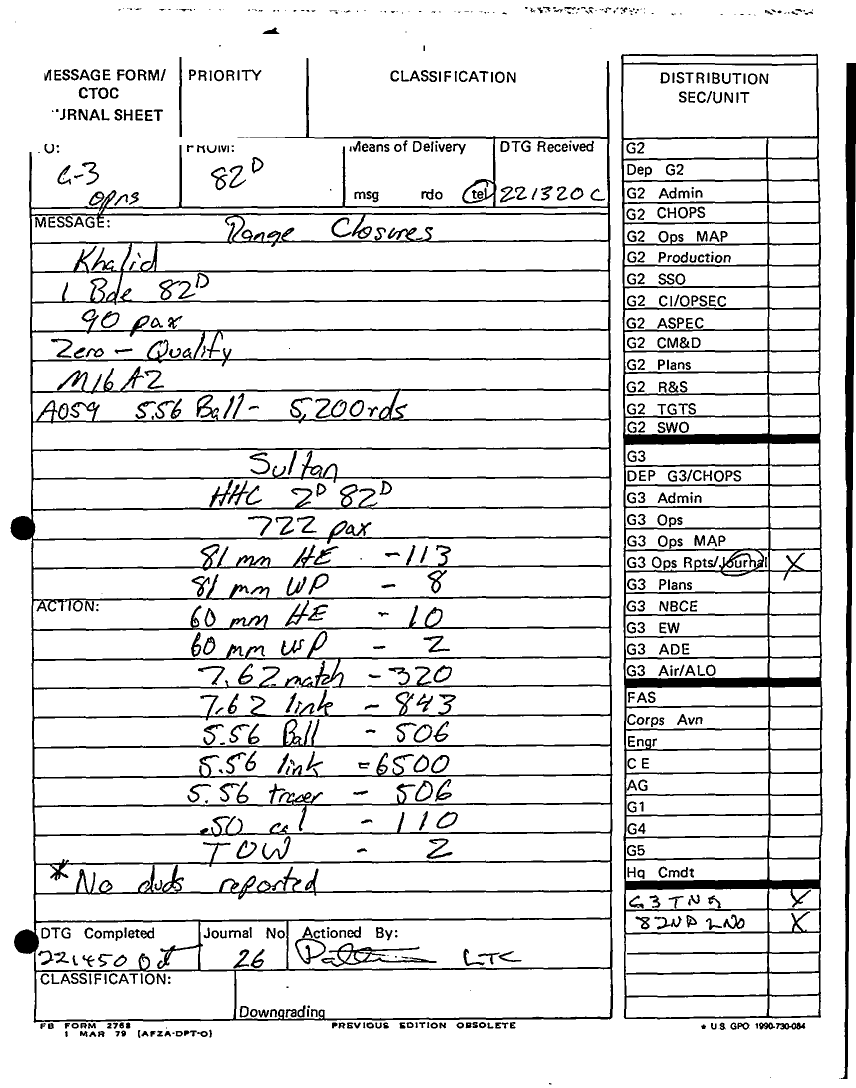 MESSAGE FORM/
CTOC
JOURNAL SHEET
PRIORITY
CLASSIFICATION
TO:
G-3
opns
FROM:
82D
Means of Delivery
msg rdo tel
DTG Received
221320 C
MESSAGE:
Range Closures
Khalid
1 Bde 82D
90 pax
Zero - Qualify
M16A2
A059 5.56 Ball - 5,200 rds
Sultan
HHC 2D 82D
722 pax
81 mm HE - 113
81 mm WP - 8
ACTION:
60 mm HE - 10
60 mm WP - 2
7.62 match - 320
7.62 link - 843
5.56 Ball - 506
5.56 link = 6500
5.56 tracer - 506
.50 cal - 110
TOW - 2
* No duds reported
DTG Completed
221450 Oct
Journal No
26
Actioned By:
LTC
CLASSIFICATION:
Downgrading
FB FORM 2768
1 MAR 79 (AFZA-DPT-O)
PREVIOUS EDITION OBSOLETE
DISTRIBUTION
SEC/UNIT
G2
Dep G2
G2 Admin
G2 CHOPS
G2 Ops MAP
G2 Production
G2 SSO
G2 CI/OPSEC
G2 ASPEC
G2 CM&D
G2 Plans
G2 R&S
G2 TGTS
G2 SWO
G3
DEP G3/CHOPS
G3 Admin
G3 Ops
G3 Ops MAP
G3 Ops Rpts/Journal X
G3 Plans
G3 NBCE
G3 EW
G3 ADE
G3 Air/ALO
FAS
Corps Avn
Engr
C E
AG
G1
G4
G5
Hq Cmdt
G3 TNG X
82ND LNO X
* U.S. GPO 1990-730-084